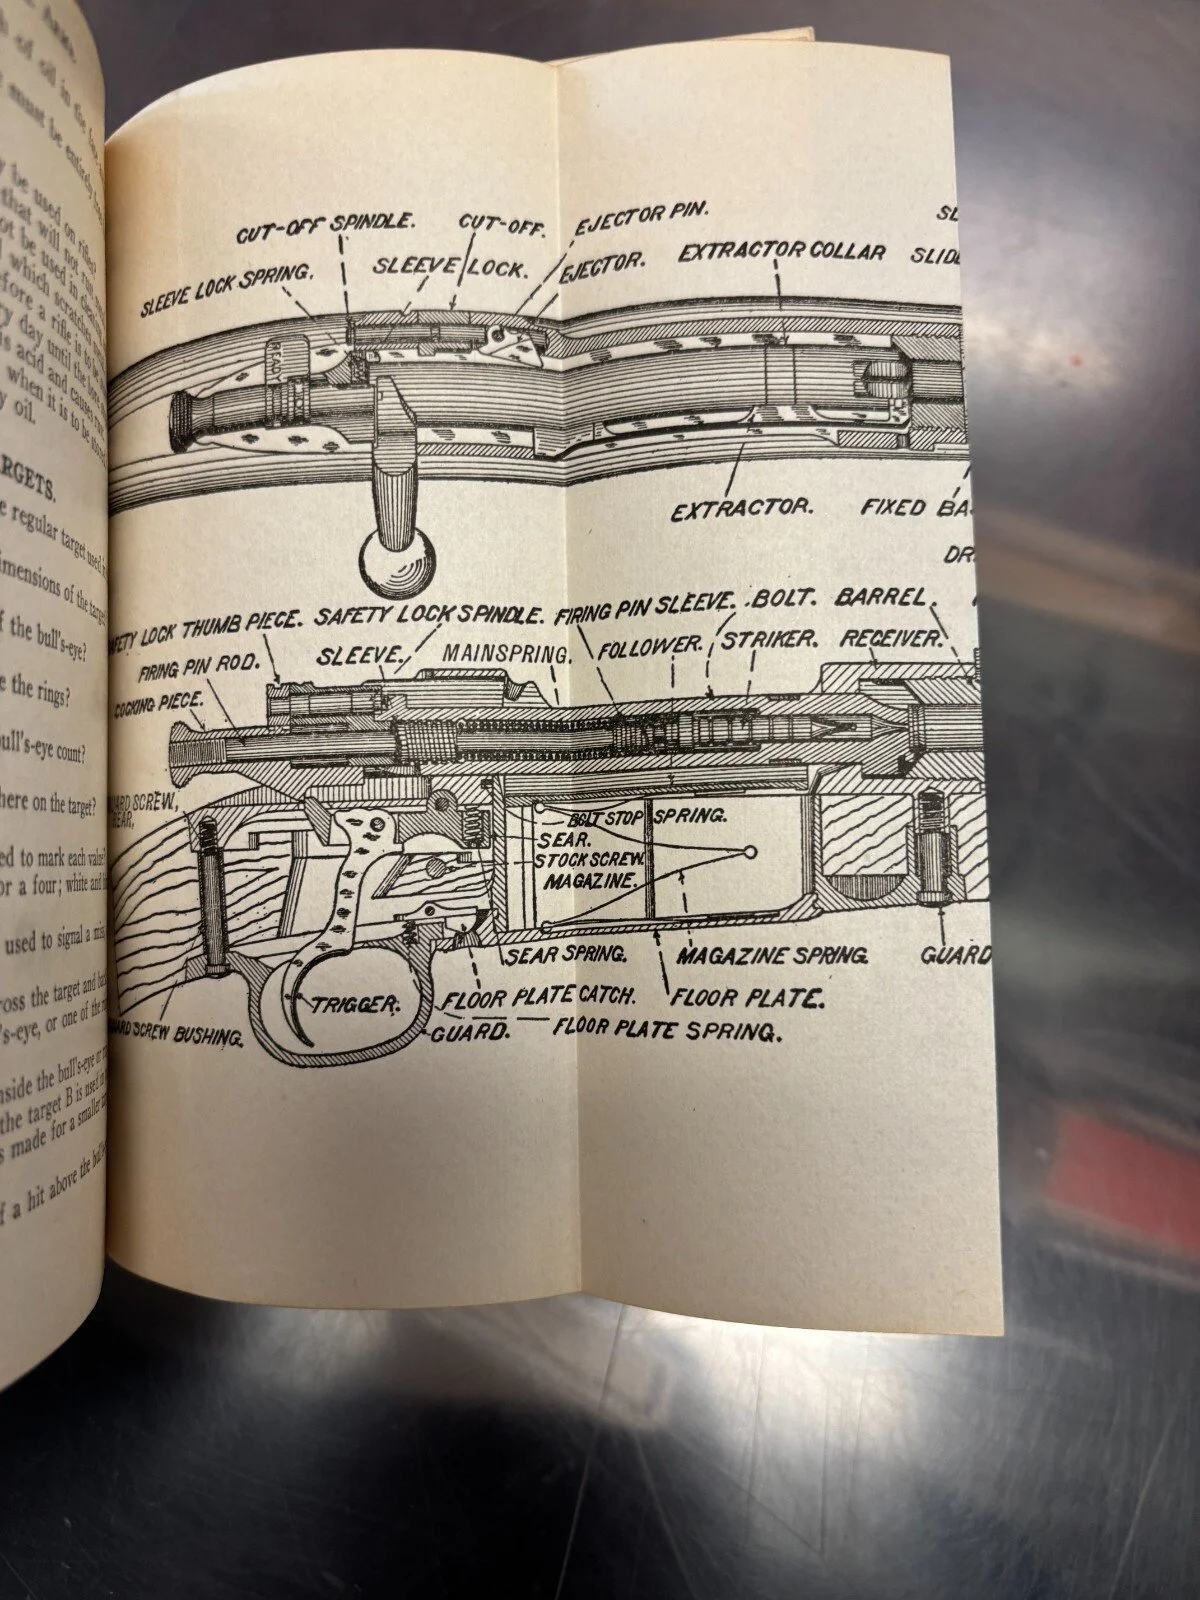 of oil in the
must be entirely
be used on rifle?
that will not
not be used in
which scratches
before a rifle is to be
every day until the bore
acid and causes rust
when it is to be stored
oil.
RGETS.
e regular target used
imensions of the target
f the bull's-eye?
e the rings?
bull's-eye count?
here on the target?
ed to mark each value?
or a four; white and
used to signal a miss
ross the target and back
's-eye, or one of the
nside the bull's-eye or
the target B is used in
s made for a smaller
f a hit above the
CUT-OFF SPINDLE. CUT-OFF. EJECTOR PIN.
SLEEVE LOCK SPRING. SLEEVE LOCK. EJECTOR. EXTRACTOR COLLAR SLID
READY
EXTRACTOR. FIXED BA
DR
FETY LOCK THUMB PIECE. SAFETY LOCK SPINDLE. FIRING PIN SLEEVE. BOLT. BARREL.
FIRING PIN ROD. SLEEVE. MAINSPRING. FOLLOWER. STRIKER. RECEIVER.
COCKING PIECE.
ARD SCREW,
REAR,
BOLT STOP SPRING.
SEAR.
STOCK SCREW.
MAGAZINE.
SEAR SPRING. MAGAZINE SPRING. GUARD
TRIGGER. FLOOR PLATE CATCH. FLOOR PLATE.
ARD SCREW BUSHING. GUARD. FLOOR PLATE SPRING.